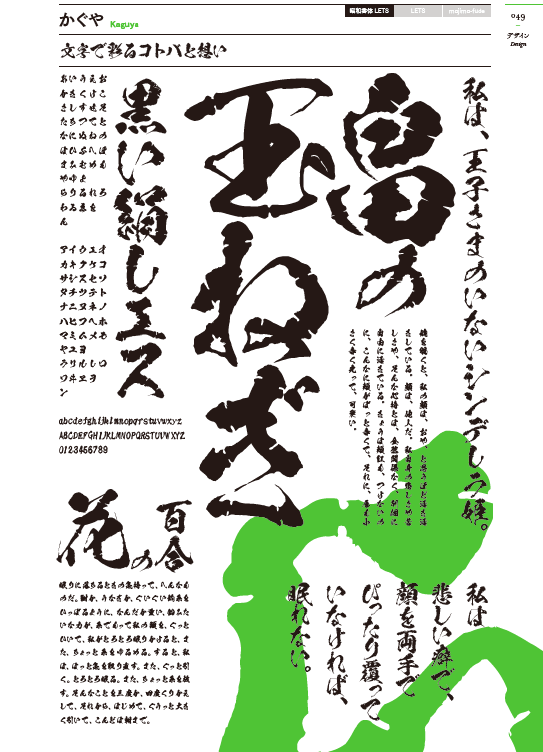 かぐや Kaguya
昭和書体 LETS
LETS
majima-fude
049
デザイン
Design
文字で彩るコトバと想い
私は、王子さまのいないシンデレラ姫。
畠の
玉ねぎ
黒い絹レエス
あいうえお
かきくけこ
さしすせそ
たちつてと
なにぬねの
はひふへほ
まみむめも
やゆよ
らりるれろ
わゐゑを
ん
アイウエオ
カキクケコ
サシスセソ
タチツテト
ナニヌネノ
ハヒフヘホ
マミムメモ
ヤユヨ
ラリルレロ
ワヰヱヲ
ン
abcdefghijklmnopqrstuvwxyz
ABCDEFGHIJKLMNOPQRSTUVWXYZ
0123456789
鏡を覗くと、私の顔は、おや、と思うほど活き活
きしている。顔は、他人だ。私自身の悲しさや苦
しさや、そんな心持とは、全然関係なく、別個に
自由に活きている。きょうは頬紅も、つけないの
に、こんなに頬がぱっと赤くて、それに、唇も小
さく赤く光って、可愛い。
百合
の
花
眠りに落ちるときの気持って、へんなも
のだ。鮒か、うなぎか、ぐいぐい釣糸を
ひっぱるように、なんだか重い、鉛みたい
な力が、糸でもって私の頭を、ぐっと
ひいて、私がとろとろ眠りかけると、ま
た、ちょっと糸をゆるめる。すると、私
は、はっと気を取り直す。また、ぐっと引
く。とろとろ眠る。また、ちょっと糸を放
す。そんなことを三度か、四度くりかえ
して、それから、はじめて、ぐうっと大き
く引いて、こんどは朝まで。
私は
悲しい癖で、
顔を両手で
ぴったり覆って
いなければ、
眠れない。